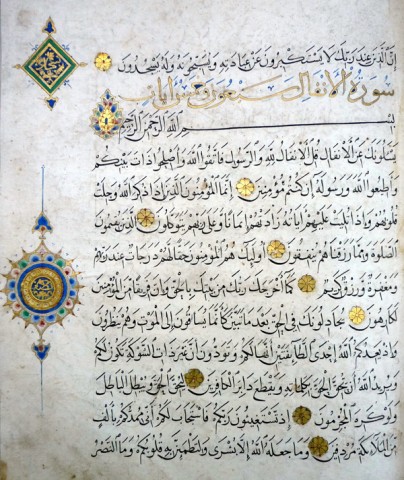 إن الذين عند ربك لا يستكبرون عن عبادته ويسبحونه وله يسجدون
سورة الأنفال سبعون آيات
بسم الله الرحمن الرحيم
يسئلونك عن الأنفال قل الأنفال لله والرسول فاتقوا الله وأصلحوا ذات بينكم
وأطيعوا الله ورسوله إن كنتم مؤمنين إنما المؤمنون الذين إذا ذكر الله وجلت
قلوبهم وإذا تليت عليهم آياته زادتهم إيمانا وعلى ربهم يتوكلون الذين يقيمون
الصلوة ومما رزقناهم ينفقون أولئك هم المؤمنون حقا لهم درجات عند ربهم
ومغفرة ورزق كريم كما أخرجك ربك من بيتك بالحق وإن فريقا من المؤمنين
لكارهون يجادلونك في الحق بعد ما تبين كأنما يساقون إلى الموت وهم ينظرون
وإذ يعدكم الله إحدى الطائفتين أنها لكم وتودون أن غير ذات الشوكة تكون لكم
ويريد الله أن يحق الحق بكلماته ويقطع دابر الكافرين ليحق الحق ويبطل الباطل
ولو كره المجرمون إذ تستغيثون ربكم فاستجاب لكم أني ممدكم بألف
من الملائكة مردفين وما جعله الله إلا بشرى ولتطمئن به قلوبكم وما النصر